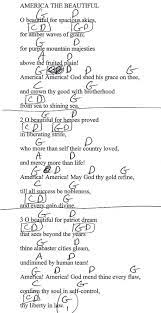 AMERICA THE BEAUTIFUL
G D
O beautiful for spacious skies,
C D G D
for amber waves of grain;
G D
for purple mountain majesties
A D
above the fruited plain!
G D
America! America! God shed his grace on thee,
C G
and crown thy good with brotherhood
C D G
from sea to shining sea.
G D
2 O beautiful for heroes proved
C D G D
in liberating strife,
G D
who more than self their country loved,
A D
and mercy more than life!
G D
America! America! May God thy gold refine,
C G
till all success be nobleness,
C D G
and every gain divine.
G D
3 O beautiful for patriot dream
C D G D
that sees beyond the years
G D
thine alabaster cities gleam,
A D
undimmed by human tears!
G D
America! America! God mend thine every flaw,
C G
confirm thy soul in self-control,
C D G
thy liberty in law.